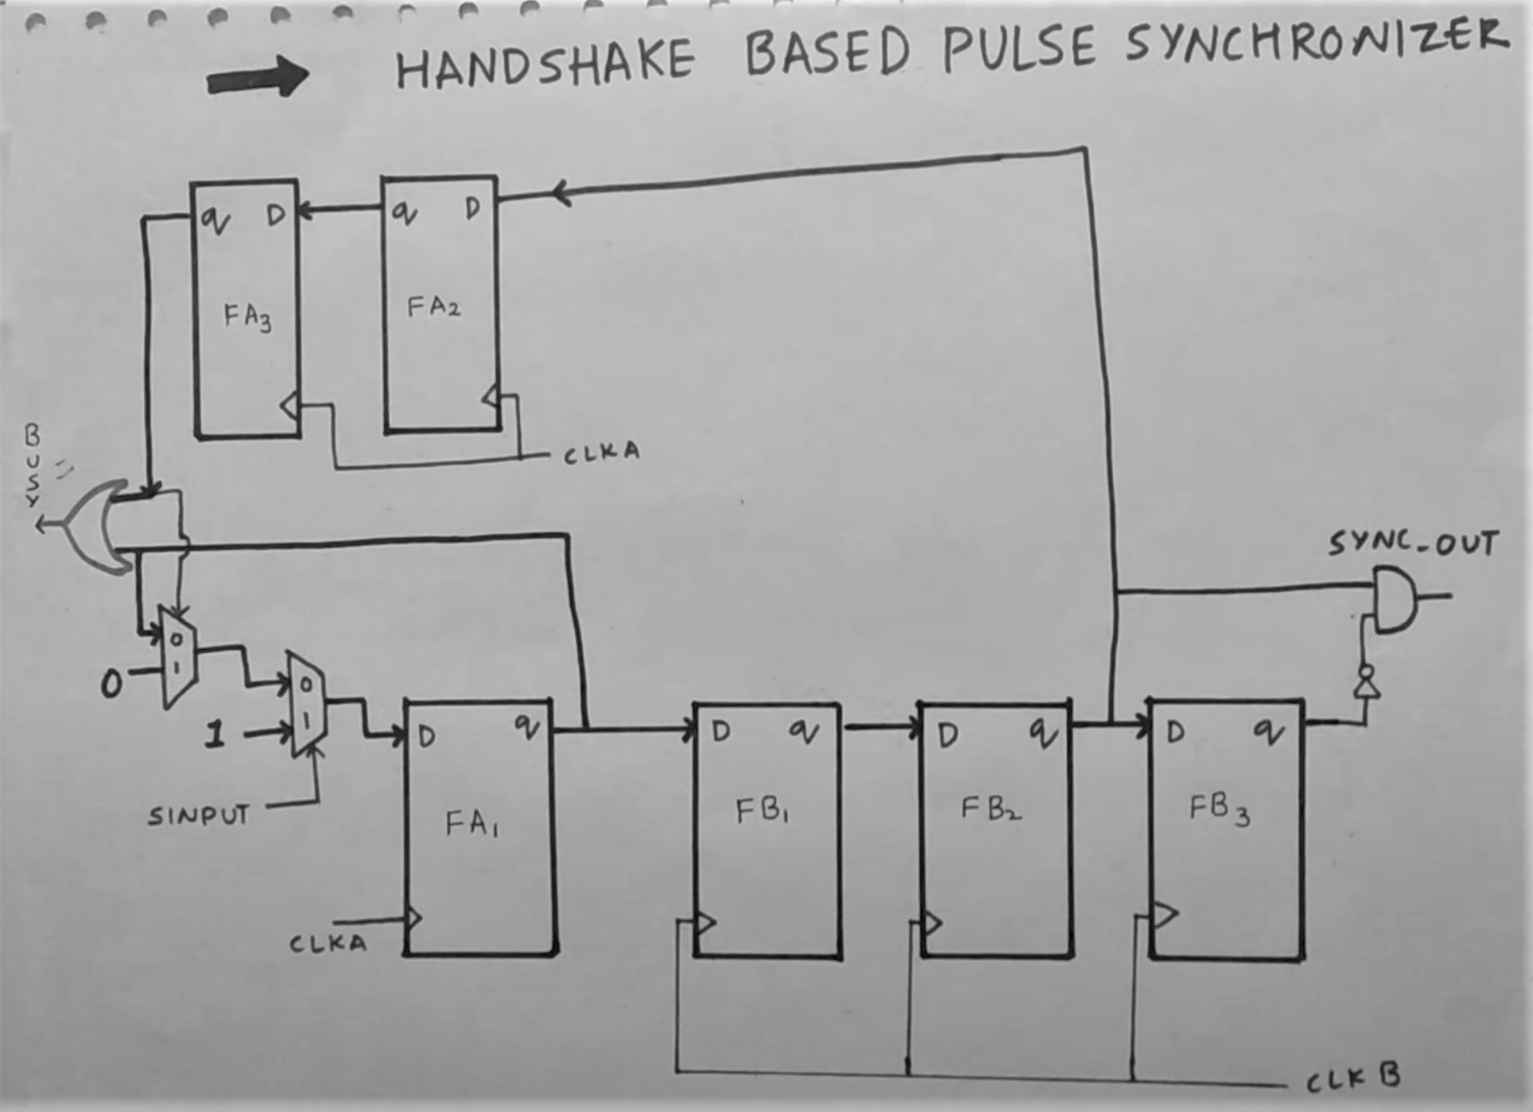 HANDSHAKE BASED PULSE SYNCHRONIZER
q D
FA3
q D
FA2
CLKA
BUSY
SYNC_OUT
0
1
0
0
1
1
SINPUT
D q
FA1
CLKA
D q
FB1
D q
FB2
D q
FB3
CLK B